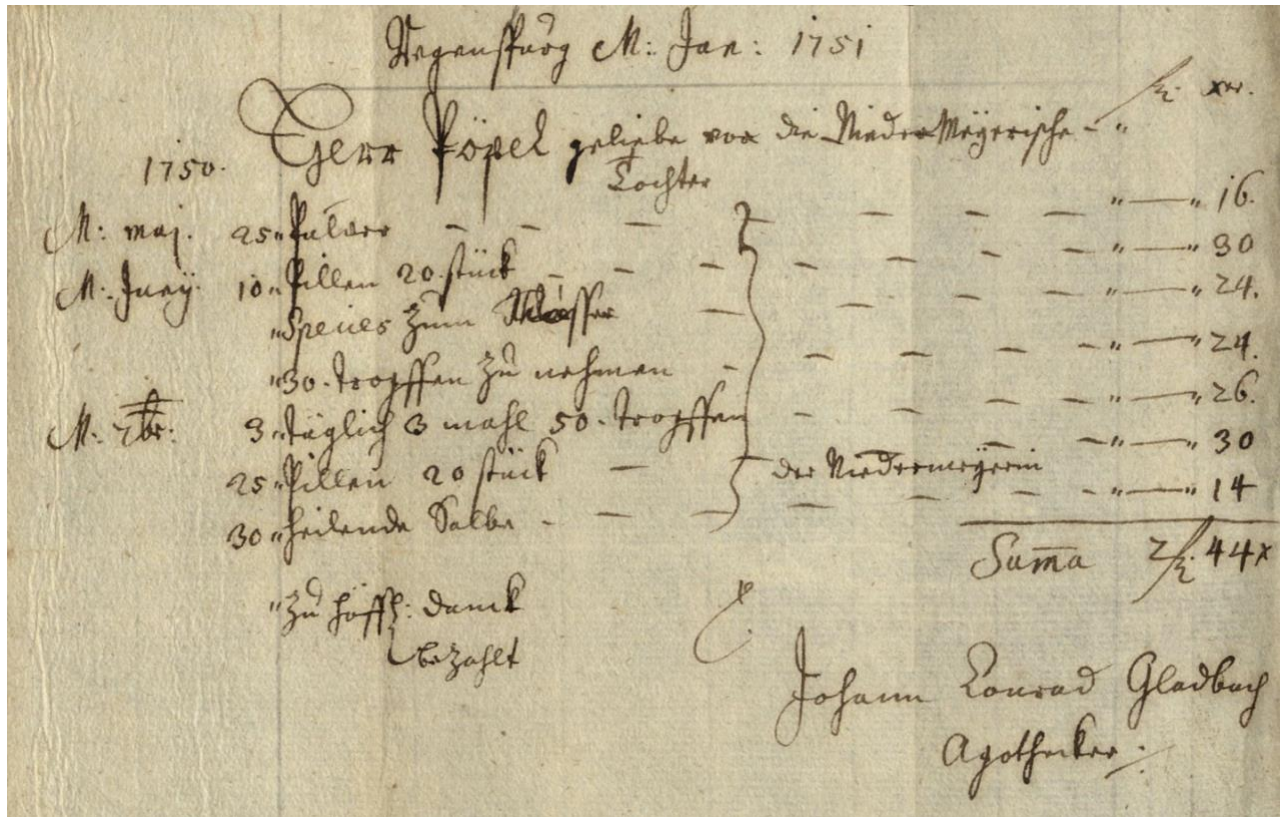 Regenspurg M: Jan: 1751
fl. xer.
Herr Pöpel geliebe vor die NiederMeÿerische - "
1750.
Tochter
M: maj. 25 " Pulver - - - - - - " — " 16.
M: Junÿ. 10 " Pillen 20 stück - - - - - - - " — " 30
" Species zum - - - - " — " 24.
" 30. tropffen zu nehmen - - - - - " — " 24.
M: 7br: 3 " täglich 3 mahl 50. tropffen - - - - " — " 26.
25 " Pillen 20 stück - - der Niedermeÿerin - - " — " 30
30 " heilende Salbe - - - - - - - " — " 14
Suma 2 fl. 44 x
" Zu höffl: danck
bezahlt
Johann Conrad Gladbach
Apothecker.